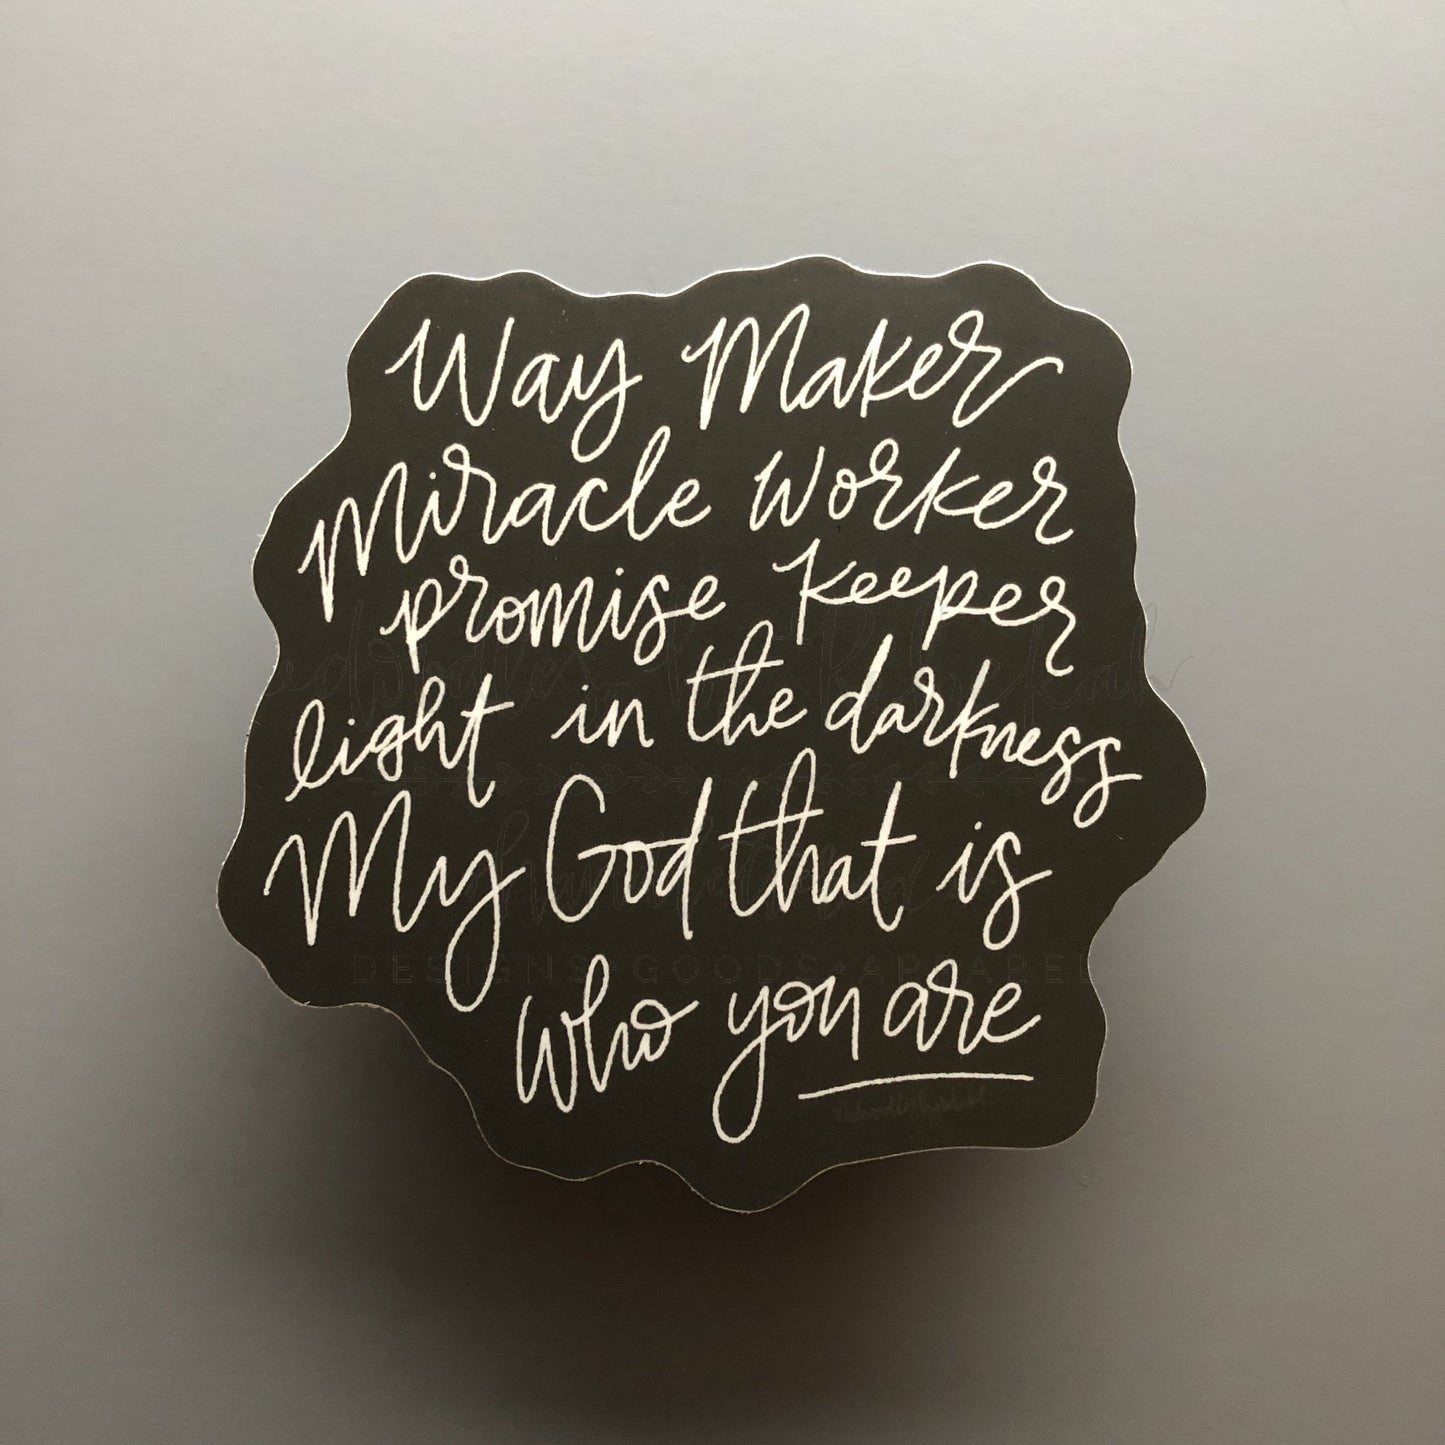 Way Maker
Miracle Worker
promise keeper
light in the darkness
My God that is
who you are
DESIGNS + GOODS + APPAREL